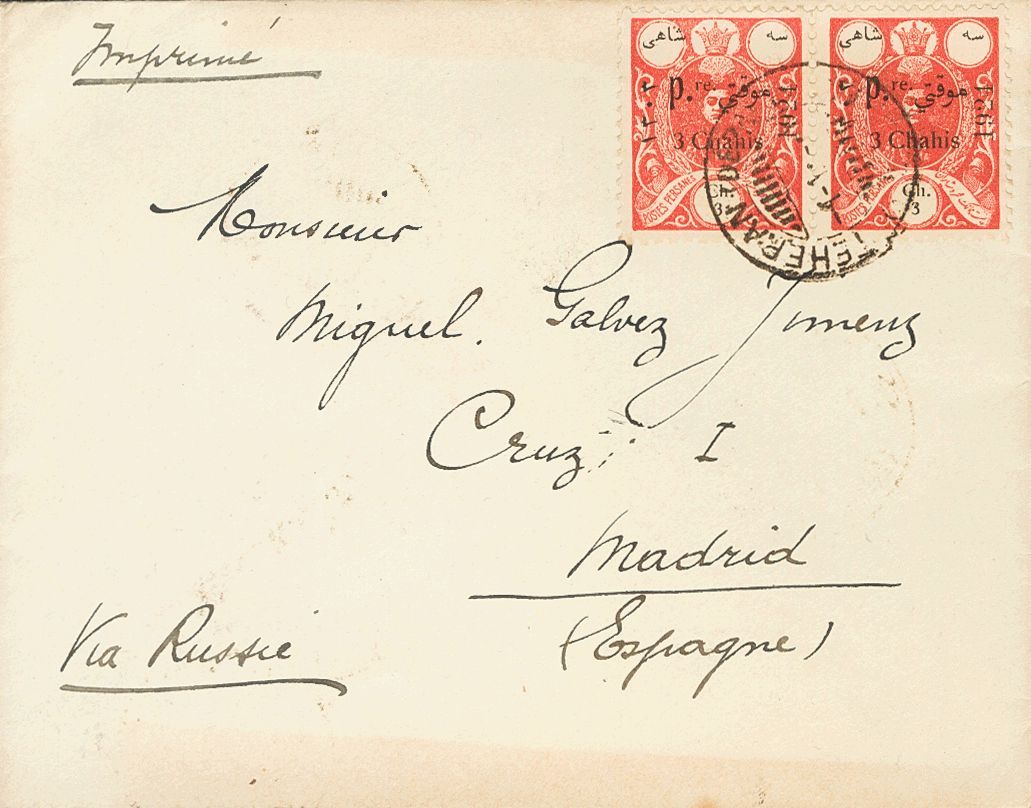 Imprimé
شاهی سه
P.re. موقتی
١٣٠٢ 1924
3 Chahis
POSTES PERSANES
Ch.
3
شاهی سه
P.re. موقتی
1924
3 Chahis
POSTES PERSANES
Ch.
3
TEHERAN
Monsieur
Miguel. Galvez Jimenz
Cruz; I
Madrid
(Espagne)
Via Russie